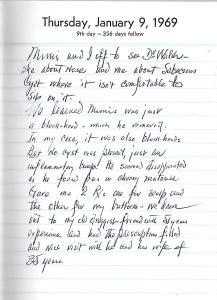 Thursday, January 9, 1969
9th day — 356 days follow
Mimi and I off to see Dr
she about Nose and me about Sebaceous
Cyst where it isn't comfortable to
sit on, it.
We learned Mimi's was just
a black-head - which he removed.
In my case, it was also black-heads
But the cyst was present, just an
inflammatory lump! He seemed disappointed
as he found pus or cheesy material
Gave me 2 Rx. one for soap and
the other for my buttocks - we drove
out to my old druggist friend with 55 years
experience and had the prescription filled
and nice visit with he and his wife of
35 years.